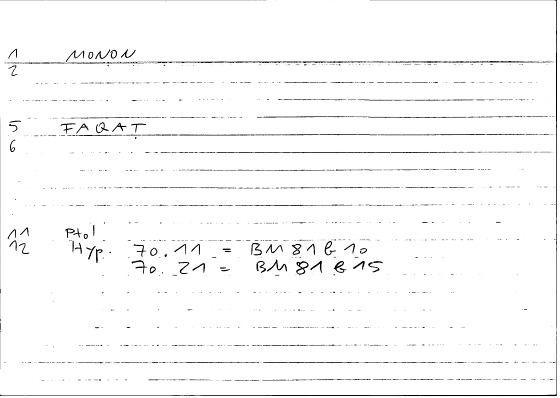 1 MONON
2
5 FAQAT
6
11 Ptol
12 Hyp. 70.11 = BM 81 b 10
70.21 = BM 81 b 15